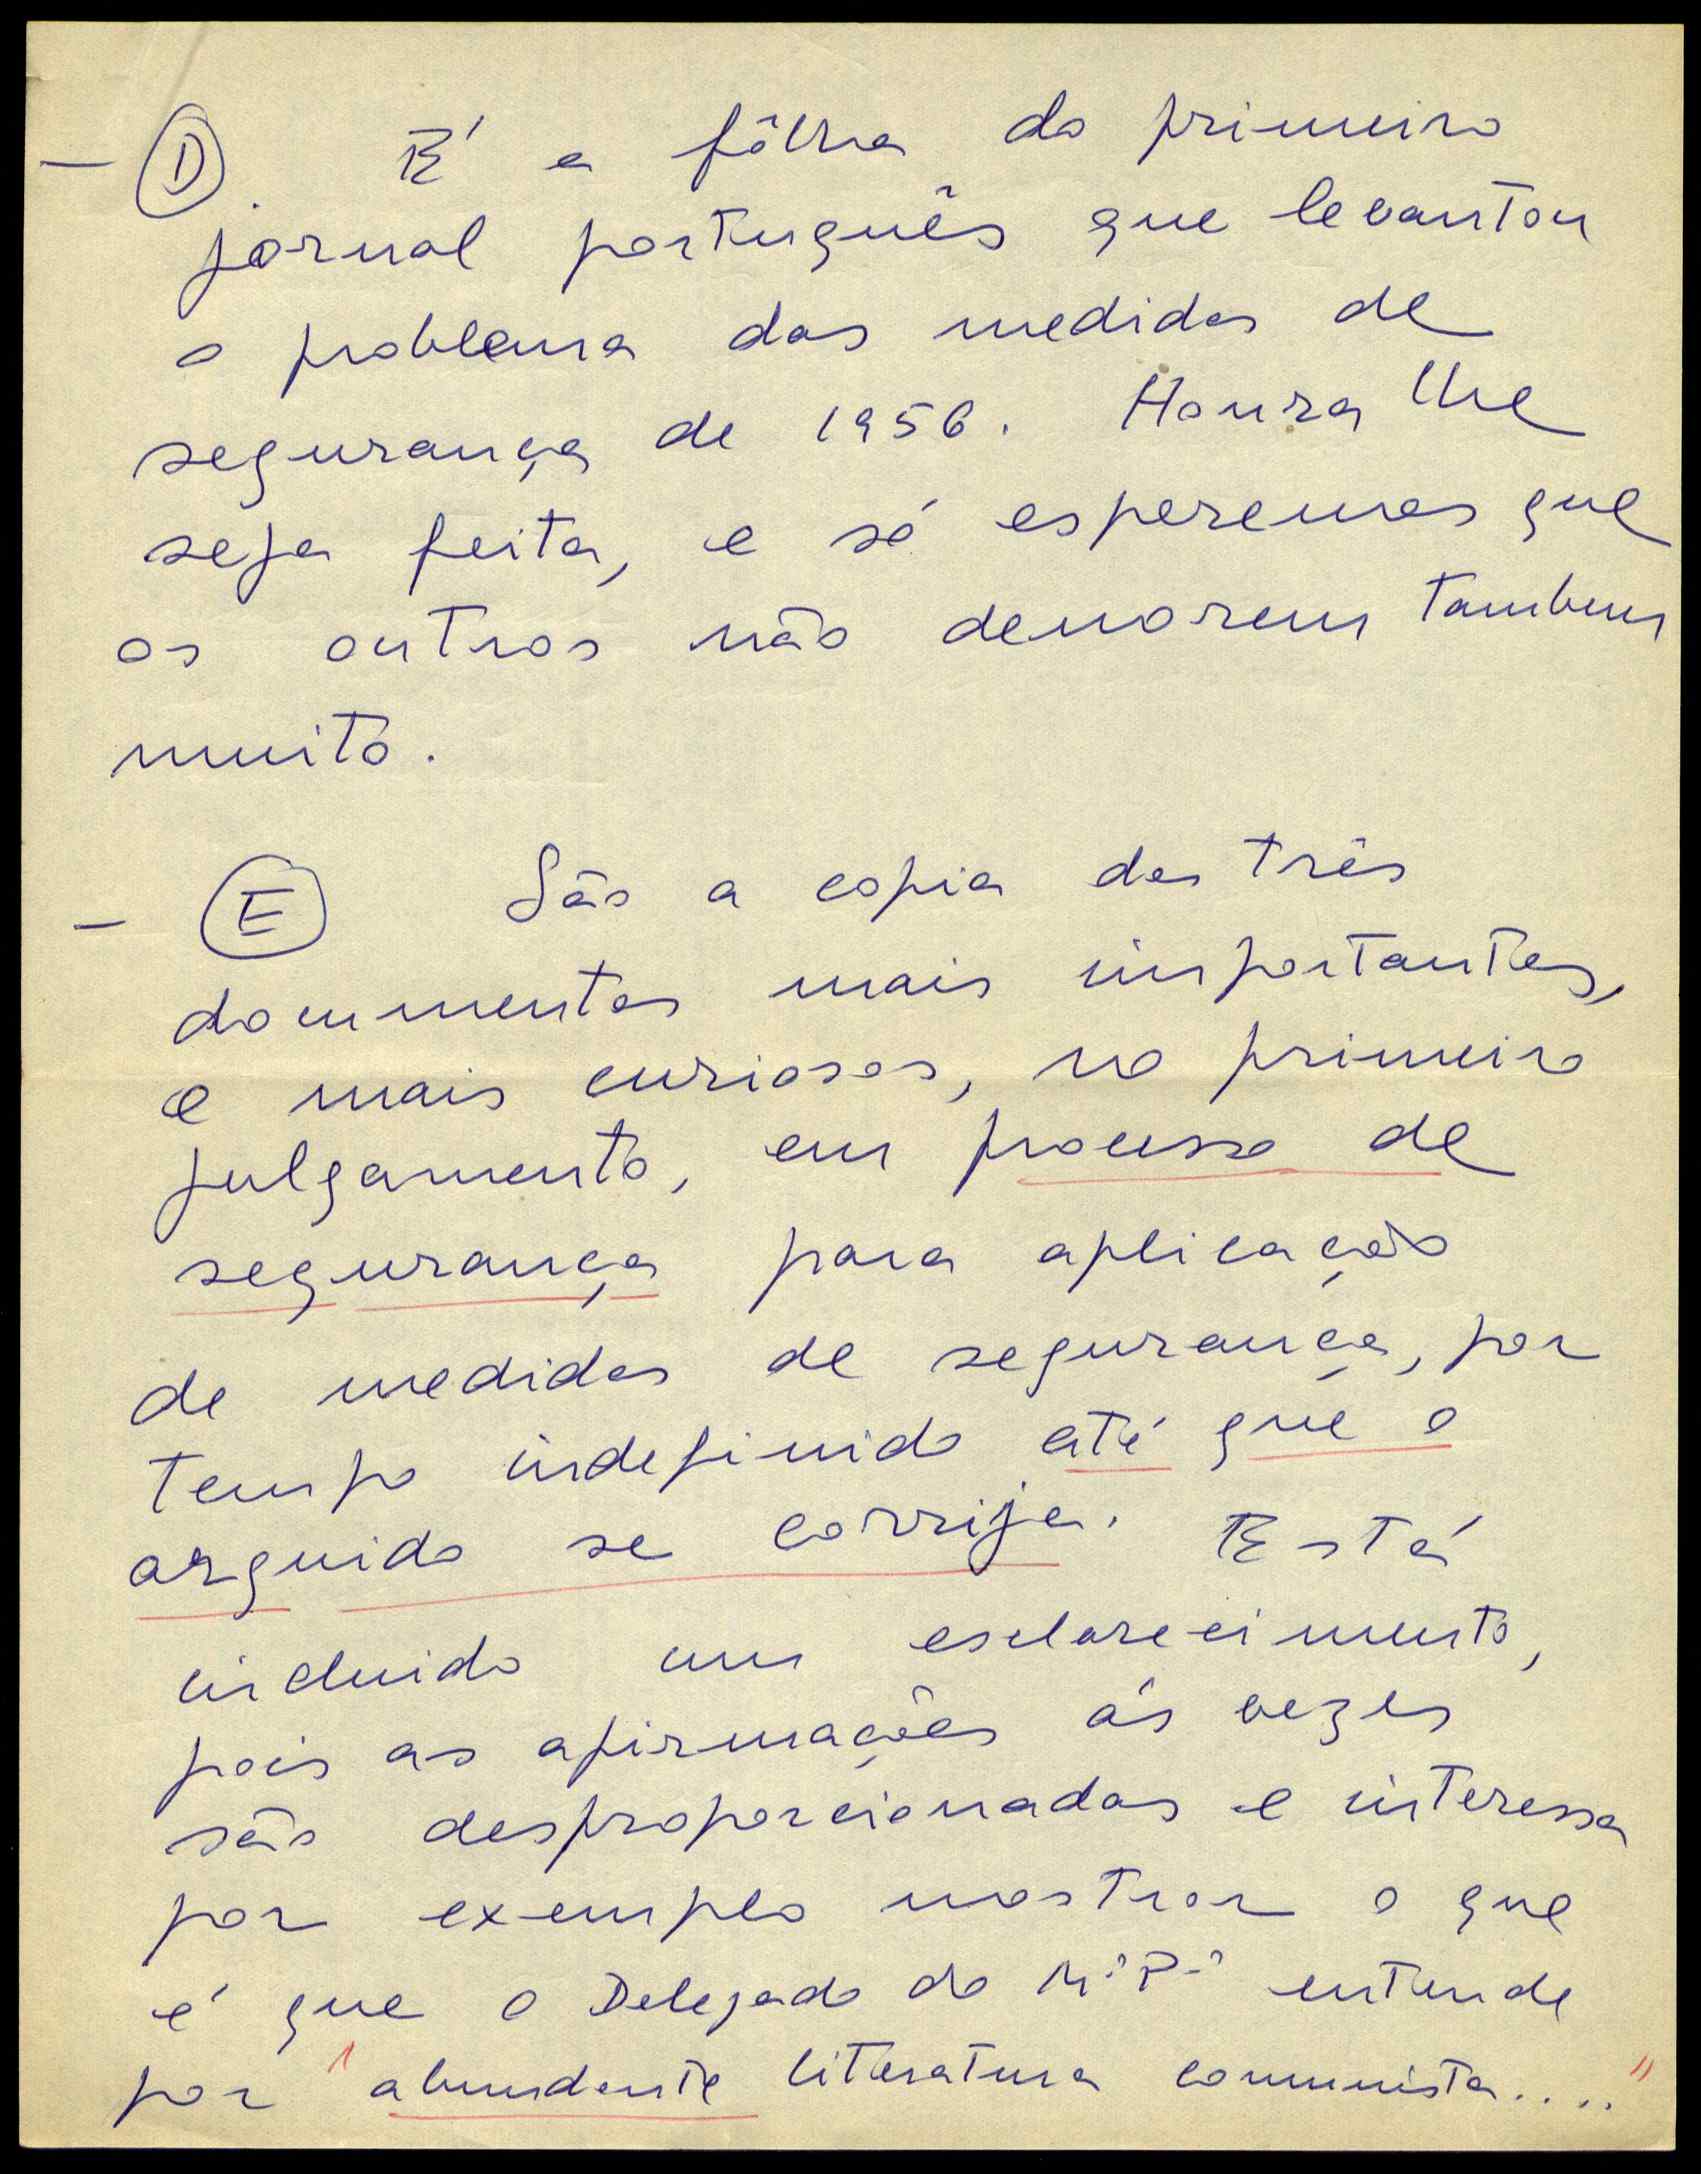 — D. É a fôlha do primeiro
jornal português que levantou
o problema das medidas de
segurança de 1956. Honra lhe
seja feita, e só esperemos que
os outros não demorem tambem
muito.
— E São a copia dos três
documentos mais importantes,
e mais curiosos, no primeiro
julgamento, em processo de
segurança para aplicação
de medidas de segurança, por
tempo indefinido até que o
arguido se corrija. Está
incluido um esclarecimento,
pois as afirmações ás vezes
são desproporcionadas e interessa
por exemplo mostrar o que
é que o Delegado do M.º P.º entende
por "abundante literatura comunista....."